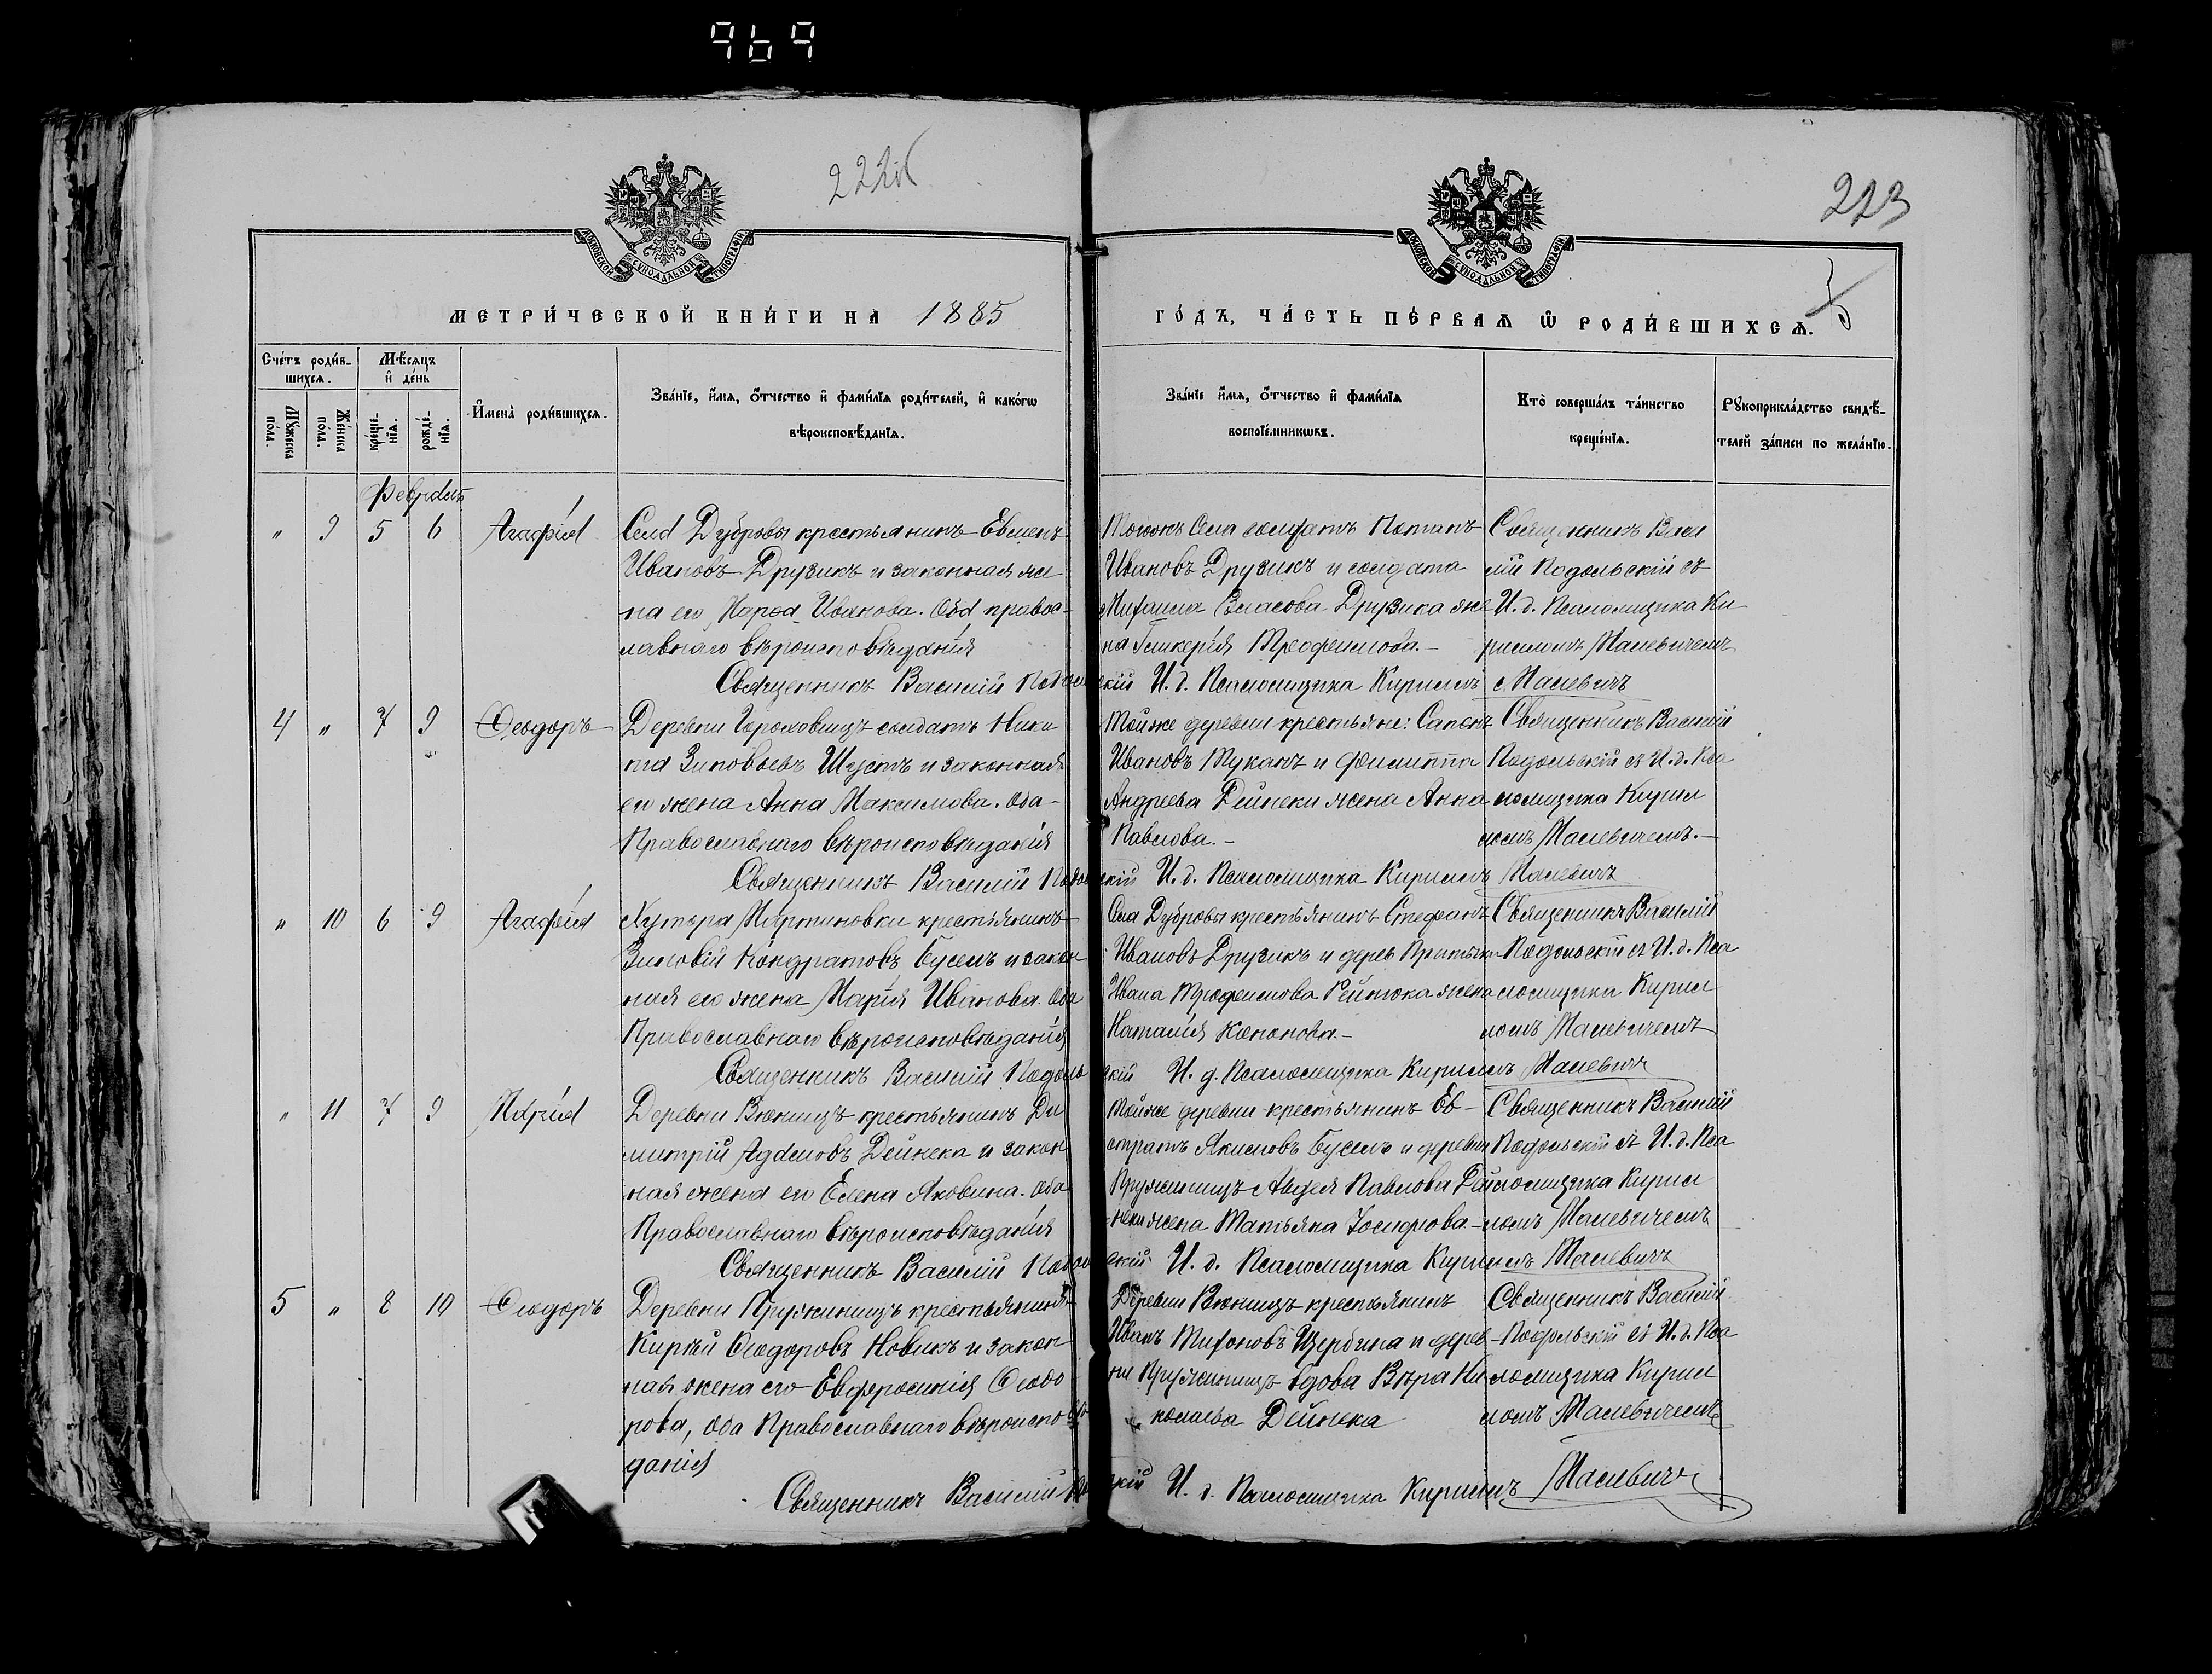 969
222об
223
5
МЕТРИ́ЧЕСКОЙ КНИ́ГИ НА 1885
ГО́ДЪ, ЧА́СТЬ ПЕ́РВАѦ Ѡ҆ РОДИ́ВШИХСѦ.
Сче́тъ роди́в-
шихсѧ.
Мꙋжеска пола.
Женска пола.
Мѣ́сѧцъ
и҆ де́нь
кре́ще-
нїѧ.
рожде́-
нїѧ.
И҆мена̀ роди́вшихсѧ.
Зва́нїе, и҆́мѧ, ѻ҆́тчество и҆ фами́лїѧ роди́телей, и҆ како́гѡ
вѣроисповѣ́данїѧ.
Зва́нїе и҆́мѧ, ѻ҆́тчество и҆ фами́лїѧ
воспрїе́мникѡвъ.
Кто̀ соверша́лъ та́инство
креще́нїѧ.
Рꙋкоприкла́дство свидѣ́-
телей за́писи по жела́нїю.
Февраль
" 9 5 6 Агафія
Села Дубровы крестьянинъ Евменъ
Ивановъ Друзикъ и законная же
на его Ивановна. Оба правос-
лавнаго вѣроисповѣданія
Тогожъ Села солдатъ Потапъ
Ивановъ Друзикъ и солдата
Михаила Власова Друзика же
на Гликерія Трофимова.-
Священникъ Васи
лій Подольскій съ
И. д. Псаломщика Ки
рилломъ Малевичемъ
Священникъ Василій Подольскій И. д. Псаломщика Кириллъ Малевичъ
4 " 7 9 Ѳеодоръ
Деревни солдатъ Ники
та Зиновьевъ Шустъ и законная
его жена Анна Максимова. Оба
Православнаго вѣроисповѣданія
Тойже деревни крестьяне:
Ивановъ Муканъ и Филиппа
Андреева Дейнеки жена Анна
Павлова.-
Священникъ Василій
Подольскій съ И. д. Пса
ломщика Кирил
ломъ Малевичемъ.-
Священникъ Василій Подольскій И. д. Псаломщика Кириллъ Малевичъ
" 10 6 9 Агафія
Хутора Мартиновки крестьянинъ
Зиновій Кондратовъ Бусель и закон
ная его жена Марія Иванова. Оба
Православнаго вѣроисповѣданія
Села Дубровы крестьянинъ Стефанъ
Ивановъ Друзикъ и дерев
Ивана Трофимова жена
Наталія Кононова.-
Священникъ Василій
Подольскій съ И. д. Пса
ломщика Кирил
ломъ Малевичемъ
Священникъ Василій Подольскій И. д. Псаломщика Кириллъ Малевичъ
" 11 7 9 Марія
Деревни Вюнищъ крестьянинъ Ди
митрій Адамовъ Дейнека и закон
ная жена его Елена Яковина. Оба
Православнаго вѣроисповѣданія
Тойже деревни крестьянинъ Ев-
стратъ Якимовъ Бусель и деревни
Пружинищъ Авдея Павлова Дей
неки жена Татьяна Іосифова.-
Священникъ Василій
Подольскій съ И. д. Пса
ломщика Кирил
ломъ Малевичемъ
Священникъ Василій Подольскій И. д. Псаломщика Кириллъ Малевичъ
5 " 8 10 Ѳеодоръ
Деревни Пружинищъ крестьянинъ
Ѳеодоровъ Новикъ и закон
ная жена его Евфросинія Ѳеодо
рова, Оба Православнаго вѣроисповѣ
данія
Деревни Вюнищъ крестьянинъ
Иванъ Щербина и дерев-
ни Пружинищъ вдова Вѣра Ни
колаева Дейнека
Священникъ Василій
Подольскій съ И. д. Пса
ломщика Кирил
ломъ Малевичемъ
Священникъ Василій Подольскій И. д. Псаломщика Кириллъ Малевичъ